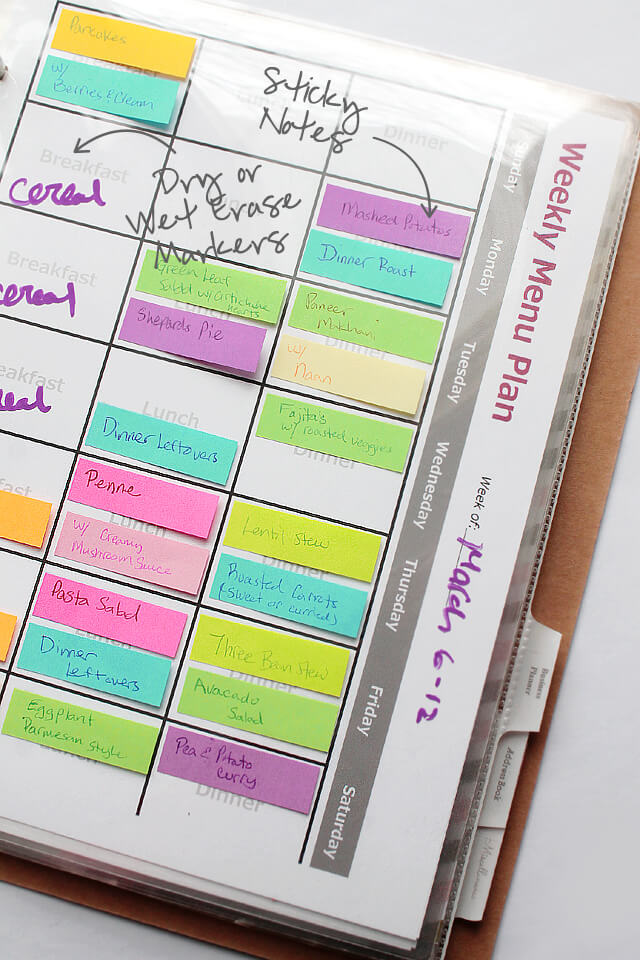 Pancakes
w/
Berries & Cream
Sticky
Notes
Dinner
Sunday
Weekly Menu Plan
Breakfast
cereal
Dry or
Wet Erase
Markers
Mashed Potatos
Dinner Roast
Monday
Breakfast
cereal
Green Leaf
Salad w/ Artichoke
hearts
Lunch
Shepards Pie
Paneer
Makhani
Dinner
w/
Naan
Tuesday
Breakfast
Lunch
Dinner Leftovers
Fajita's
w/ roasted veggies
Dinner
Wednesday
Week of: March 6-12
Penne
Lunch
w/ Creamy
Mushroom Sauce
Lentil Stew
Dinner
Roasted Carrots
(sweet or curried)
Thursday
Pasta Salad
Lunch
Dinner
Leftovers
Three Bean Stew
Dinner
Avacado
Salad
Friday
Eggplant
Parmesan style
Lunch
Pea & Potato
curry
Dinner
Saturday
Business
Planner
Address Book